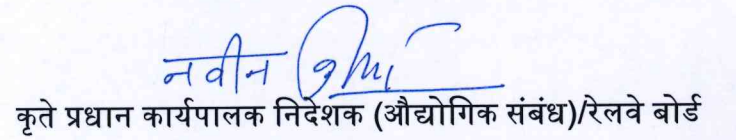 नवीन
कृते प्रधान कार्यपालक निदेशक (औद्योगिक संबंध)/रेलवे बोर्ड